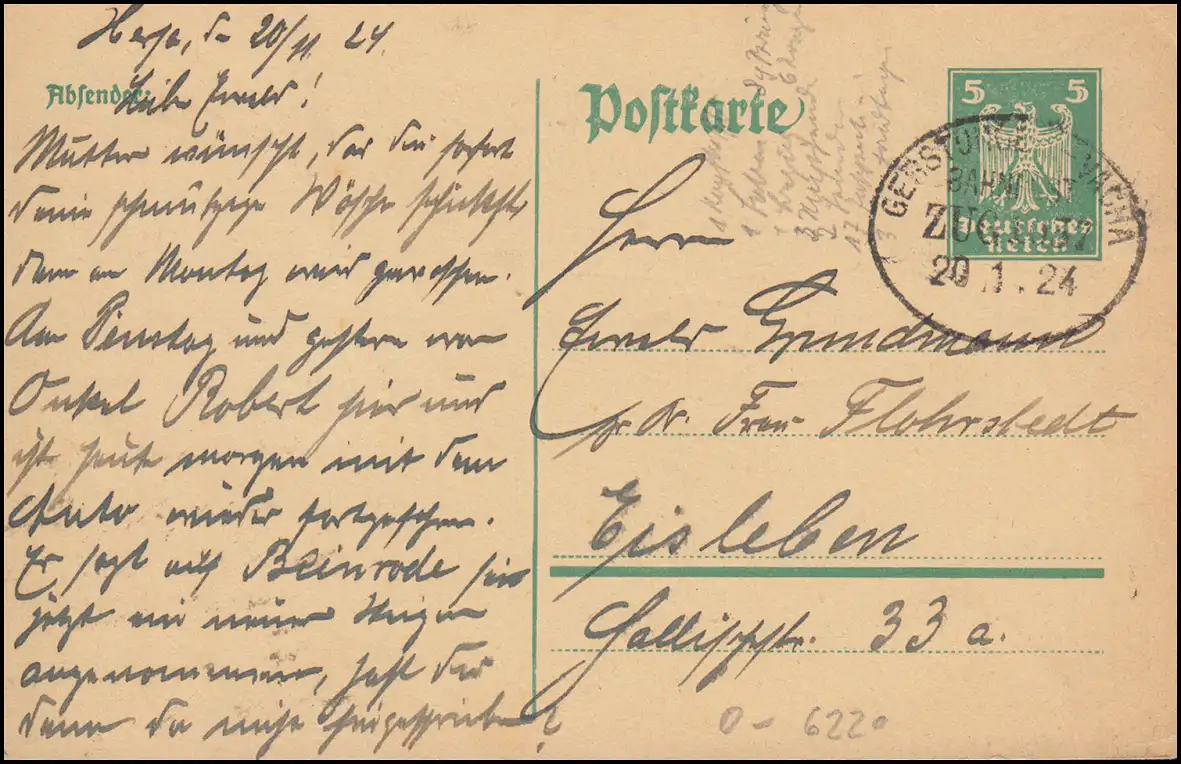 Herfa, d. 20/11. 24.
Absender:
Lieber Ewald!
Mutter wünscht, daß du sofort
deine schmutzige Wäsche schickst,
denn am Montag wird gewaschen.
Am Dienstag und gestern war
Onkel Robert hier und
ist heute morgen mit dem
Auto wieder fortgefahren.
Er sagt auf Beinrode sei
jetzt ein neuer
angenommen, hast du
denn da nicht hingeschrieben?
Postkarte
5 5
Deutsches
Reich
GERSTUNGEN VACHA
BAHNPOST
ZUG
20 . 1 . 24
Herrn
Ewald Grundmann
br. Ad. Frau Flohrstedt
Eisleben
Hallischestr. 33 a.
0 - 6220